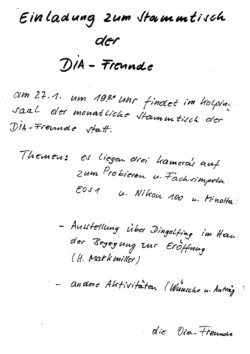 Einladung zum Stammtisch
der
DIA - Freunde
am 27.1. um 19⁰⁰ Uhr findet im Kolping
saal der monatliche Stammtisch der
DIA-Freunde statt.
Themen: es liegen drei Kameras auf
zum Probieren u. Fachsimpeln
EOS1 u. Nikon 100 u. Minolta
- Ausstellung über Dingolfing im Haus
der Begegnung zur Eröffnung
(H. Markmiller)
- andere Aktivitäten (Wünsche u. Anträg
die Dia-Freunde